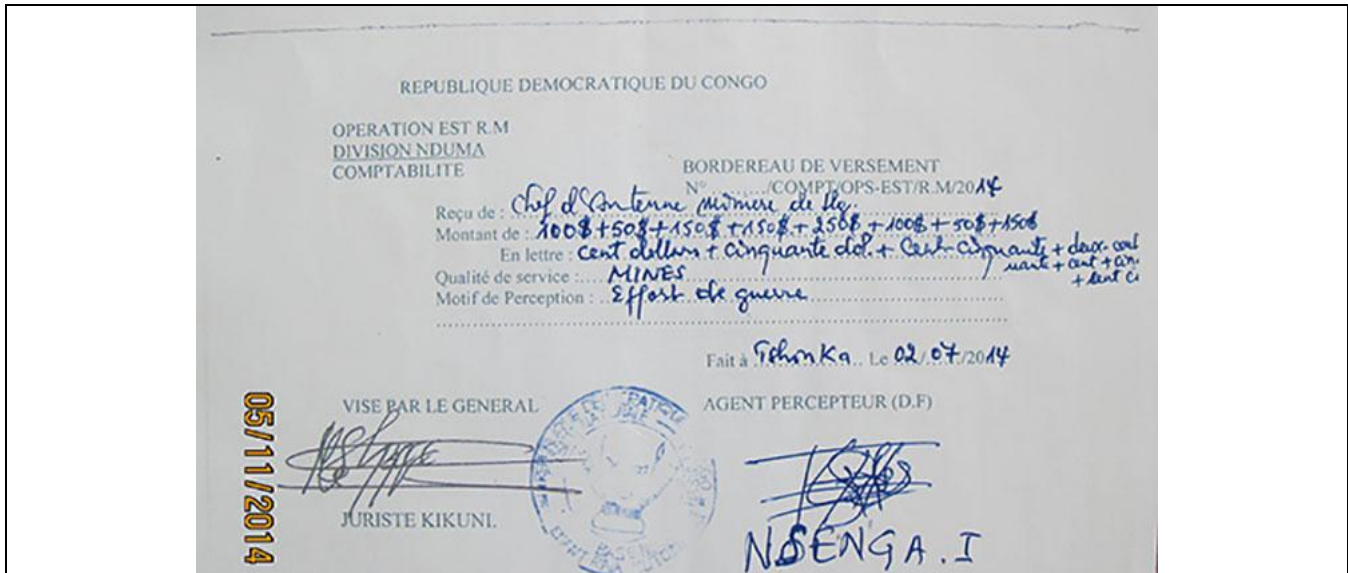 REPUBLIQUE DEMOCRATIQUE DU CONGO
OPERATION EST R.M
DIVISION NDUMA
COMPTABILITE
BORDEREAU DE VERSEMENT
N° ........./COMPT/OPS-EST/R.M/2014
Reçu de : Chef d'Antenne minière de
Montant de : 100$+50$+150$+150$+250$+100$+50$+150$
En lettre : cent dollars + cinquante dol. + Cent-cinquante + deux-cent
+ cent +
Qualité de service :..... MINES
Motif de Perception : ..Effort de guerre
Fait à Tshonka.. Le 02/.07./2014
VISE PAR LE GENERAL
AGENT PERCEPTEUR (D.F)
JURISTE KIKUNI.
NSENGA.I
05/11/2014